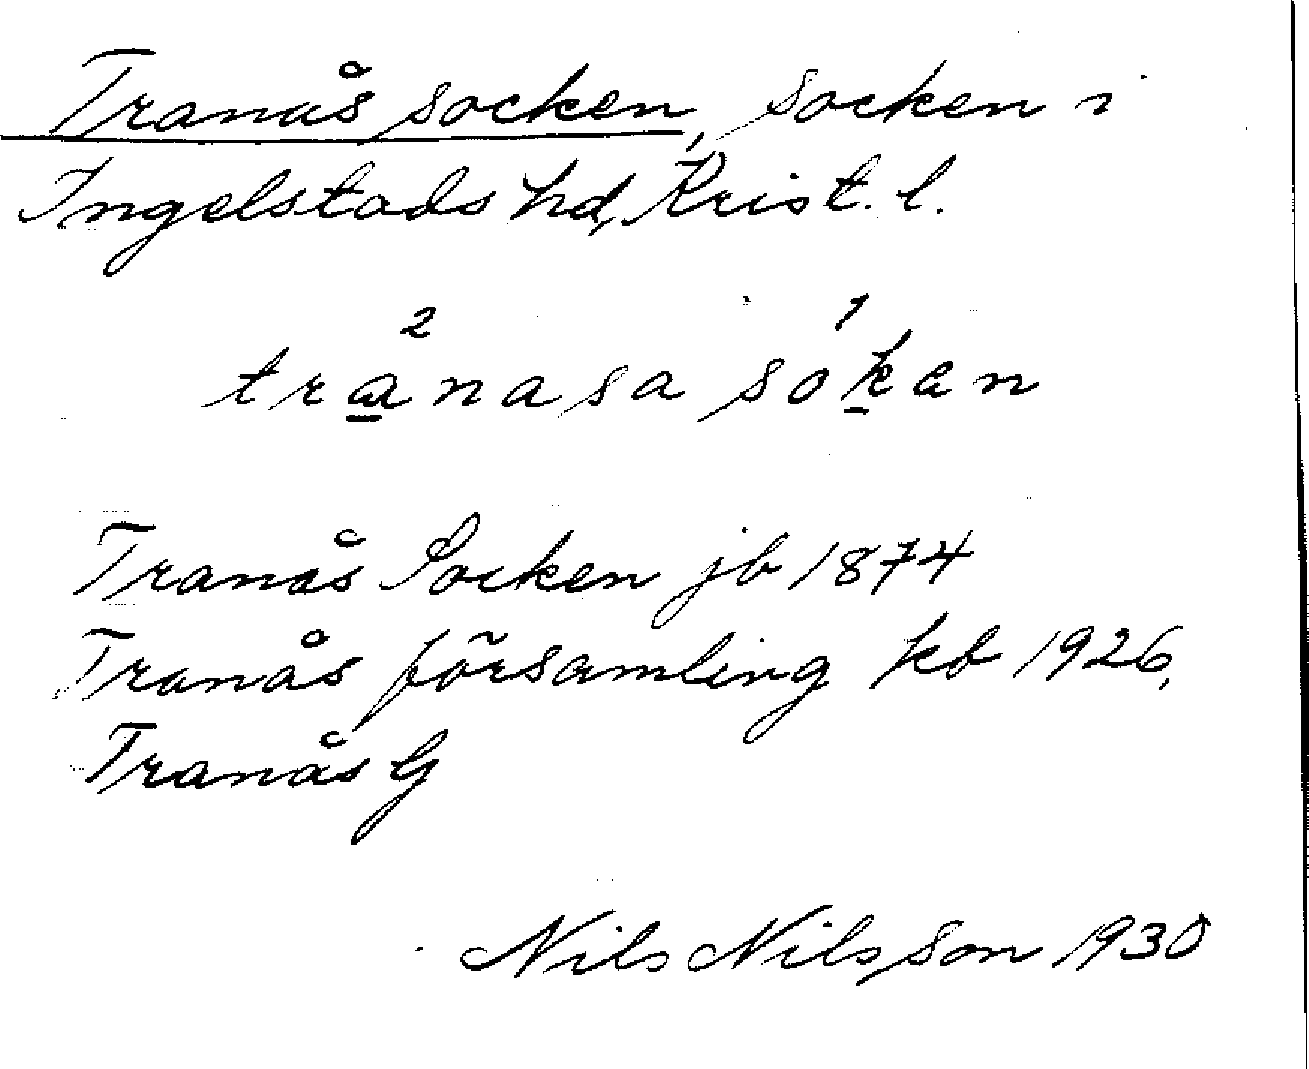 Tranås socken, socken i
Ingelstads hd, Krist. l.
2 1
tranasa sokan
Tranås Socken jb 1874
Tranås församling kb 1926,
Tranås G
Nils Nilsson 1930